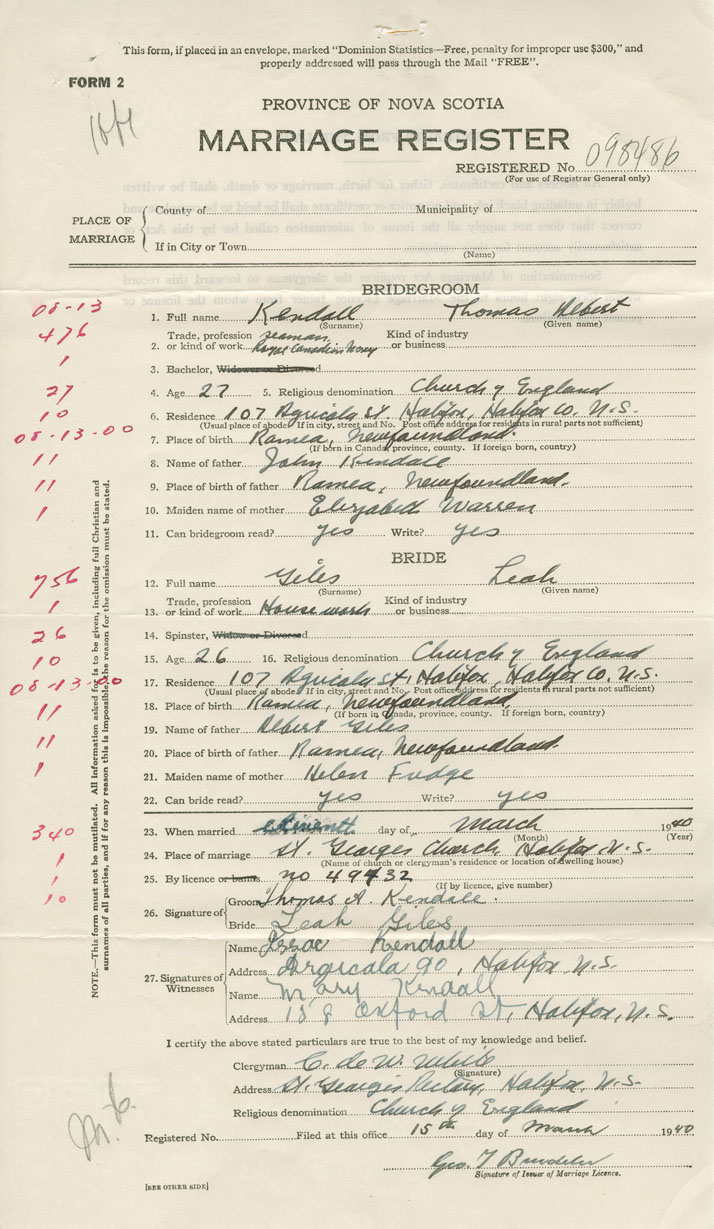 This form, if placed in an envelope, marked "Dominion Statistics—Free, penalty for improper use $300," and
properly addressed will pass through the Mail "FREE".
FORM 2
PROVINCE OF NOVA SCOTIA
MARRIAGE REGISTER
REGISTERED No. 098486
(For use of Registrar General only)
PLACE OF MARRIAGE
County of Municipality of
If in City or Town
(Name)
BRIDEGROOM
08-13 1. Full name Kendall Thomas Albert
(Surname) (Given name)
476 2. Trade, profession or kind of work seaman Royal Canadian Navy Kind of industry or business
1 3. Bachelor, Widower or Divorced
27 4. Age 27 5. Religious denomination Church of England
10 6. Residence 107 Agricola St. Halifax, Halifax Co. N.S.
(Usual place of abode. If in city, street and No. Post office address for residents in rural parts not sufficient)
08-13-00 7. Place of birth Ramea, Newfoundland.
(If born in Canada, province, county. If foreign born, country)
11 8. Name of father John Kendall
11 9. Place of birth of father Ramea, Newfoundland.
1 10. Maiden name of mother Elizabeth Warren
11. Can bridegroom read? yes Write? yes
BRIDE
756 12. Full name Giles Leah
(Surname) (Given name)
1 13. Trade, profession or kind of work House work Kind of industry or business
26 14. Spinster, Widow or Divorced
10 15. Age 26 16. Religious denomination Church of England
08-13-00 17. Residence 107 Agricola St, Halifax, Halifax Co. N.S.
(Usual place of abode. If in city, street and No. Post office address for residents in rural parts not sufficient)
11 18. Place of birth Ramea, Newfoundland,
(If born in Canada, province, county. If foreign born, country)
19. Name of father Albert Giles
11 20. Place of birth of father Ramea, Newfoundland.
1 21. Maiden name of mother Helen Fudge
22. Can bride read? yes Write? yes
340 23. When married day of March 1940
(Month) (Year)
1 24. Place of marriage St. Georges Church, Halifax N.S.
(Name of church or clergyman's residence or location of dwelling house)
1 25. By licence or banns no 49432
(If by licence, give number)
10 26. Signature of
Groom Thomas A. Kendall.
Bride Leah Giles
27. Signatures of Witnesses
Name Isaac Kendall
Address Argicala 90, Halifax N.S.
Name Mary Kendall
Address 158 Oxford St, Halifax, N.S.
I certify the above stated particulars are true to the best of my knowledge and belief.
Clergyman C. de W. White
(Signature)
Address St. Georges Rectory, Halifax, N.S.
Religious denomination Church of England
Registered No. Filed at this office 15th day of March 1940
Geo. T
Signature of Issuer of Marriage Licence.
[SEE OTHER SIDE]
NOTE.—This form must not be mutilated. All information asked for is to be given, including full Christian and
surnames of all parties, and if for any reason this is impossible, the reason for the omission must be stated.